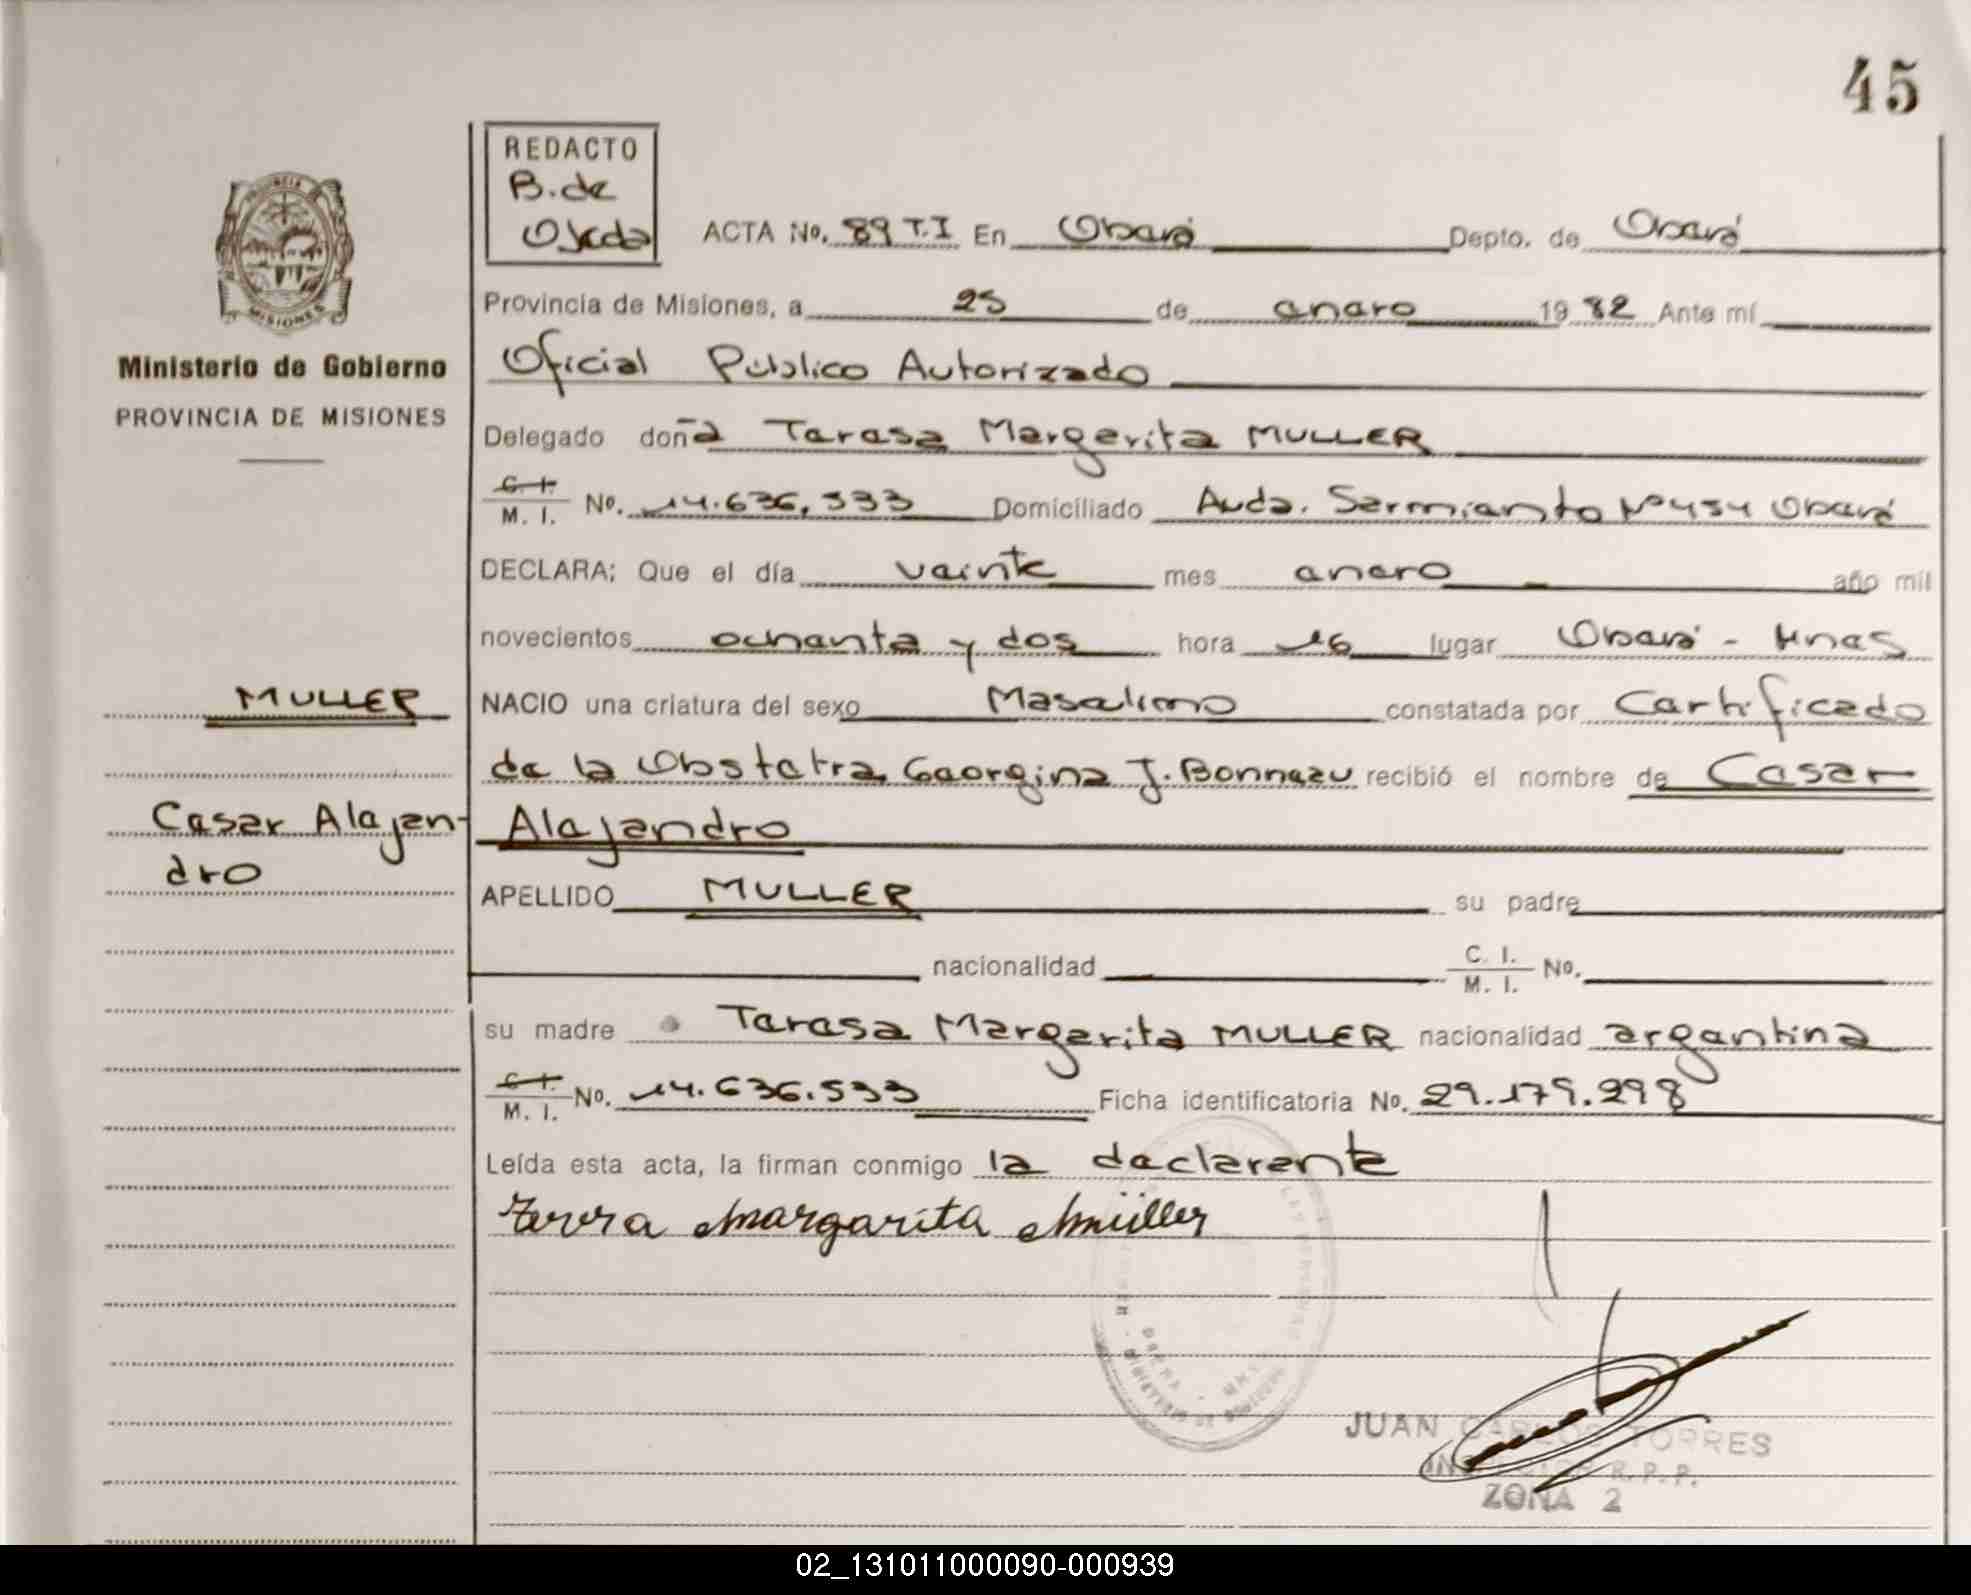 45
REDACTO
B. de
Ojeda
ACTA No. 89 T.I En Oberá Depto. de Oberá
Provincia de Misiones, a 25 de enero 1982 Ante mí
Oficial Público Autorizado
Delegado doña Teresa Margarita MULLER
C. I. / M. I. No. 14.636.533 Domiciliado Avda. Sarmiento Nº 454 Oberá
DECLARA; Que el día veinte mes enero año mil
novecientos ochenta y dos hora 16 lugar Oberá - Mnes
NACIO una criatura del sexo Masculino constatada por Certificado
de la Obstetra Georgina J. Bonneau recibió el nombre de Cesar
Alejandro
APELLIDO MULLER su padre
nacionalidad C. I. / M. I. No.
su madre Teresa Margarita MULLER nacionalidad argentina
C. I. / M. I. No. 14.636.533 Ficha identificatoria No. 29.179.298
Leída esta acta, la firman conmigo la declarente
Teresa Margarita Müller
PROVINCIA
MISIONES
Ministerio de Gobierno
PROVINCIA DE MISIONES
MULLER
Cesar Alejan-
dro
JUAN CARLOS TORRES
INSPECTOR R.P.P.
ZONA 2
02_131011000090-000939